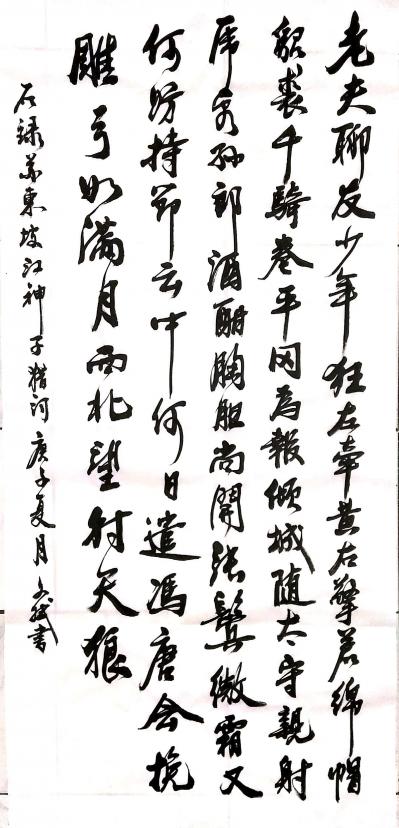 老夫聊发少年狂左牵黄右擎苍锦帽
貂裘千骑卷平冈为报倾城随太守亲射
虎看孙郎酒酣胸胆尚開张鬓微霜又
何妨持节云中何日遣冯唐会挽
雕弓如满月西北望射天狼
右录苏東坡江神子猎词庚子夏月 书